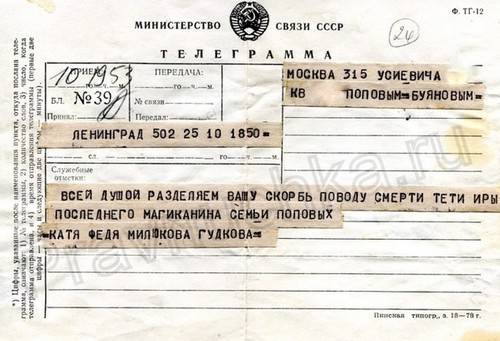 Ф. ТГ-12
МИНИСТЕРСТВО СВЯЗИ СССР
24
ТЕЛЕГРАММА
ПРИЕМ: ПЕРЕДАЧА:
10 1953
го ч. м. го ч. м.
БЛ. № 39 № связи
Принял: Передал:
МОСКВА 315 УСИЕВИЧА
КВ ПОПОВЫМ=БУЯНОВЫМ=
ЛЕНИНГРАД 502 25 10 1850=
сл. го ч. м.
Служебные
отметки:
ВСЕЙ ДУШОЙ РАЗДЕЛЯЕМ ВАШУ СКОРБЬ ПОВОДУ СМЕРТИ ТЕТИ ИРЫ
ПОСЛЕДНЕГО МАГИКАНИНА СЕМЬИ ПОПОВЫХ
КАТЯ ФЕДЯ МИЛЮКОВА ГУДКОВА=
*) Цифры, указанные после наименования пункта, откуда послана теле-
грамма, означают 1) № телеграммы, 2) количество слов, 3) число, когда
телеграмма отправлена, и 4) время отправления телеграммы (первые две
цифры — часы и следующие две цифры — минуты).
Пинская типогр., з. 18—78 г.